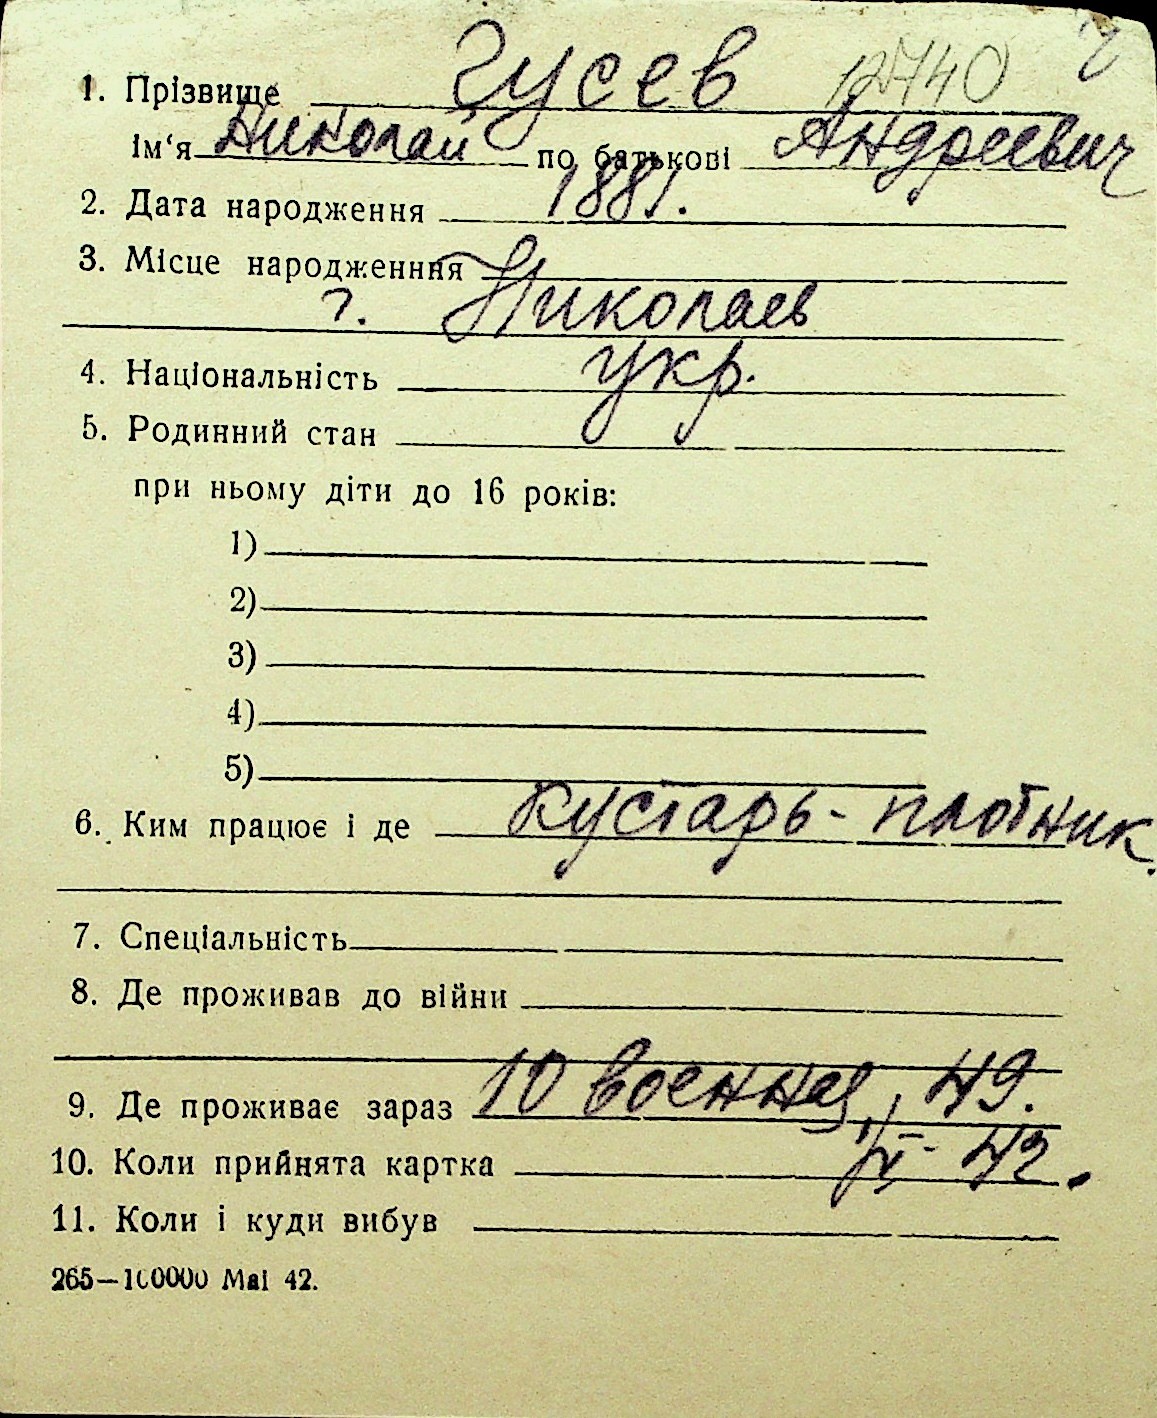 1. Прізвище Гусев 12740
Ім'я Николай по батькові Андреевич
2. Дата народження 1881.
3. Місце народженння
г. Николаев
4. Національність укр.
5. Родинний стан
при ньому діти до 16 років:
1)
2)
3)
4)
5)
6. Ким працює і де кустарь-плотник.
7. Спеціальність
8. Де проживав до війни
9. Де проживає зараз 10 военная, 49.
10. Коли прийнята картка 42.
11. Коли і куди вибув
265—100000 Mai 42.